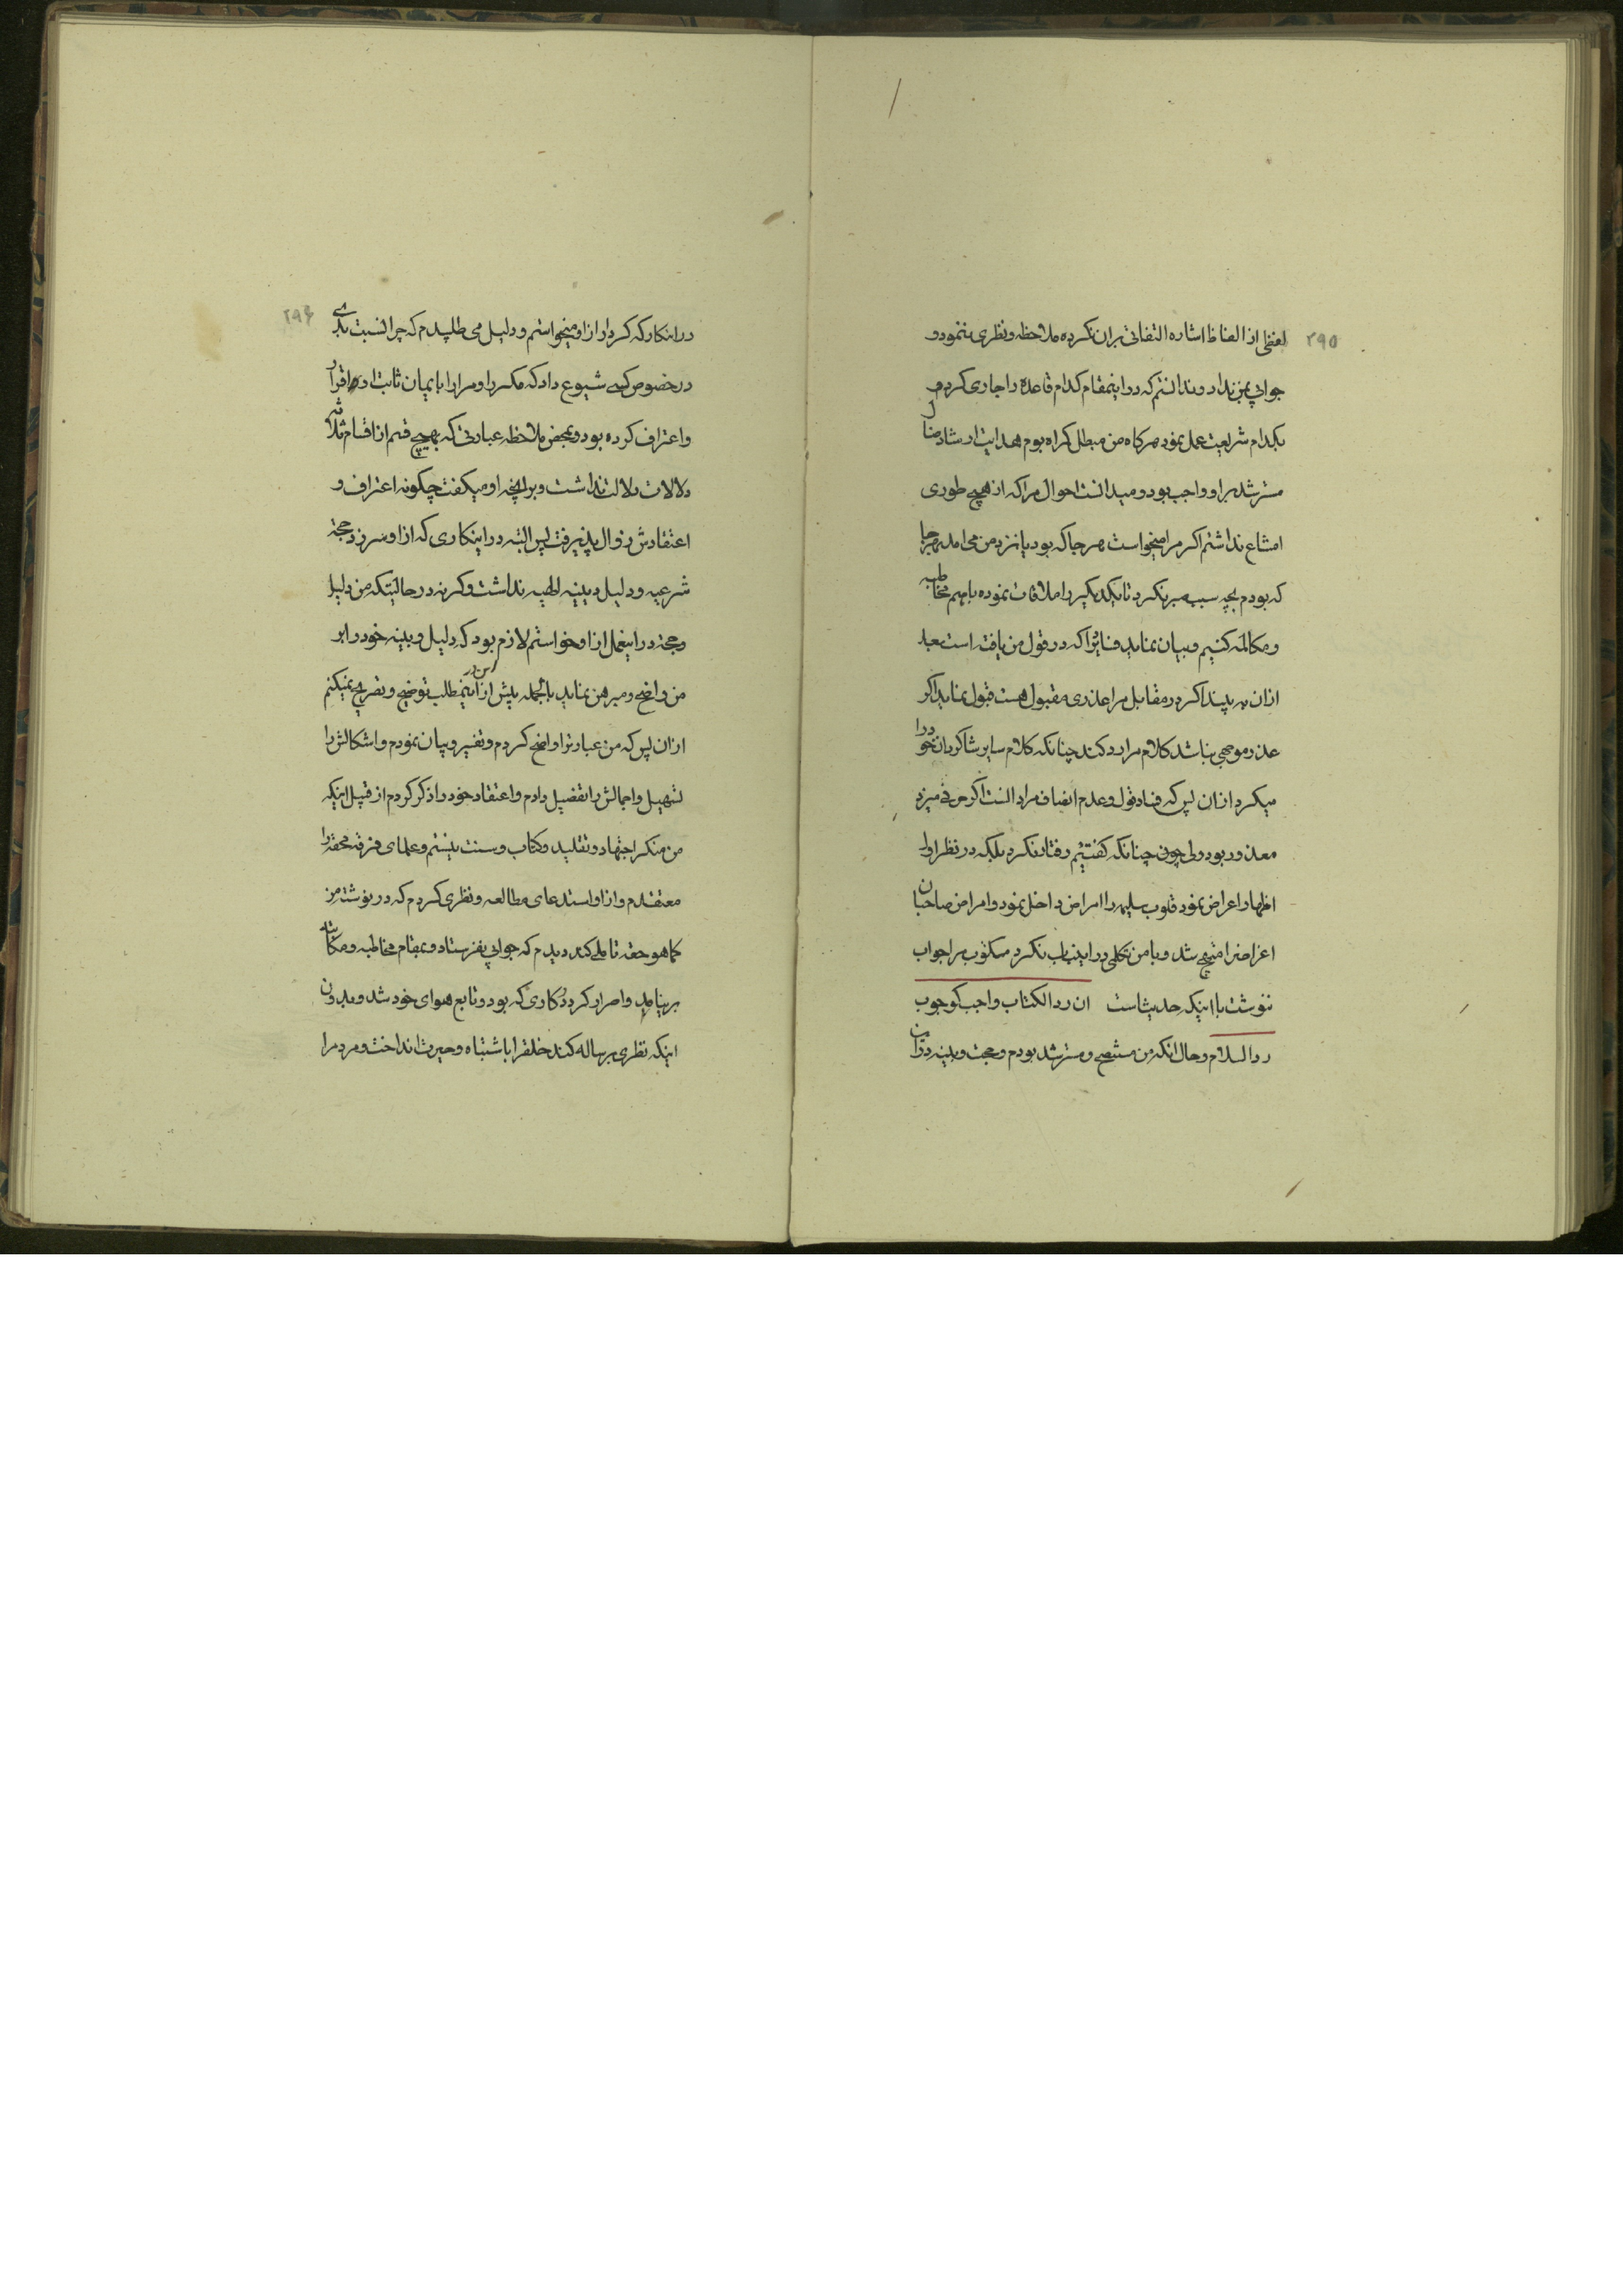 ۲۹۵
لفظی از الفاظ اشاره التفاتی بران نکرده ملاحظه ونظری ننمود و
جوابی بمن نداد وندانستم که دراینمقام کدام قاعده را جاری کرد و
بکدام شریعت عمل نمود هرکاه من مبطل کمراه بودم هدایت ارشاد ضال
مسترشد براو واجب بود ومیدانست احوال مرا که از هیچ طوری
امتناع نداشتم اکر مرا میخواست هرجا که بود یا نزد من می امد بهرجا
که بودم بچه سبب صبر نکرد تا یکدیکر را ملاقات نموده باهم مخاطبه
ومکالمه کنیم وبیان نماید فسادیرا که در قول من یافته است بعد
ازان به بیند اکر در مقابل مرا عذری مقبول هست قبول نماید اکر
عذر موجهی نباشد کلام مرا رد کند چنانکه کلام سایر شاکردان خودرا
میکرد ازان پس که فساد قول وعدم انصاف مرا دانست اکر حرفی میزد
معذور بود ولی چون چنانکه کفتیم رفتار نکرد بلکه در نظر اول
اظهار اعراض نمود قلوب سلیمه را امراض داخل نمود وامراض صاحبان
اعراضرا مهیج شد وبا من تکلمی دراینباب نکرد مکتوب مرا جواب
ننوشت با اینکه حدیثاست ان رد الکتاب واجب کوجوب
رد السلام وحال انکه من مستنصح ومسترشد بودم وحجت وبینه دران
۲۹۶
درانکار که کرد از او میخواستم ودلیل می طلبیدم که چرا نسبت بدی
در خصوص کسی شیوع داد که مکرر او مرارا بایمان ثابت او اقرار
واعتراف کرده بود وبمحض ملاحظه عبارتی که بهیچ قسم از اقسام ثلاثه
دلالات دلالت نداشت وبر انچه او میکفت چکونه اعتراف و
اعتقادش زوال پذیرفت پس البته در اینکاری که از او سر زد حجة
شرعیه ودلیل وبینه الهیه نداشت وکرنه در حالتیکه من دلیل
وحجة در اینعمل از او خواستم لازم بود که دلیل وبینه خود را بر
من واضح ومبرهن نماید بالجمله پیش از این در اینمطلب توضیح وتصریح نمیکنم
ازان پس که من عبارترا واضح کردم وتفسیر وبیان نمودم واشکالش را
تسهیل واجمالش را تفصیل دادم واعتقاد خود را ذکر کردم از قبیل اینکه
من منکر اجتهاد وتقلید وکتاب وسنت نیستم وعلمای فرقه محقه را
معتقدم واز او استدعای مطالعه ونظری کردم که در نوشته من
کما هو حقه تاملی کند دیدم که جوابی نفرستاد وبمقام مخاطبه ومکاتبه
بر نیامد واصرار کرد در کاری که بود وتابع هوای خود شد وبدون
اینکه نظری برساله کند خلقرا باشتباه وحیرت انداخت ومردم را